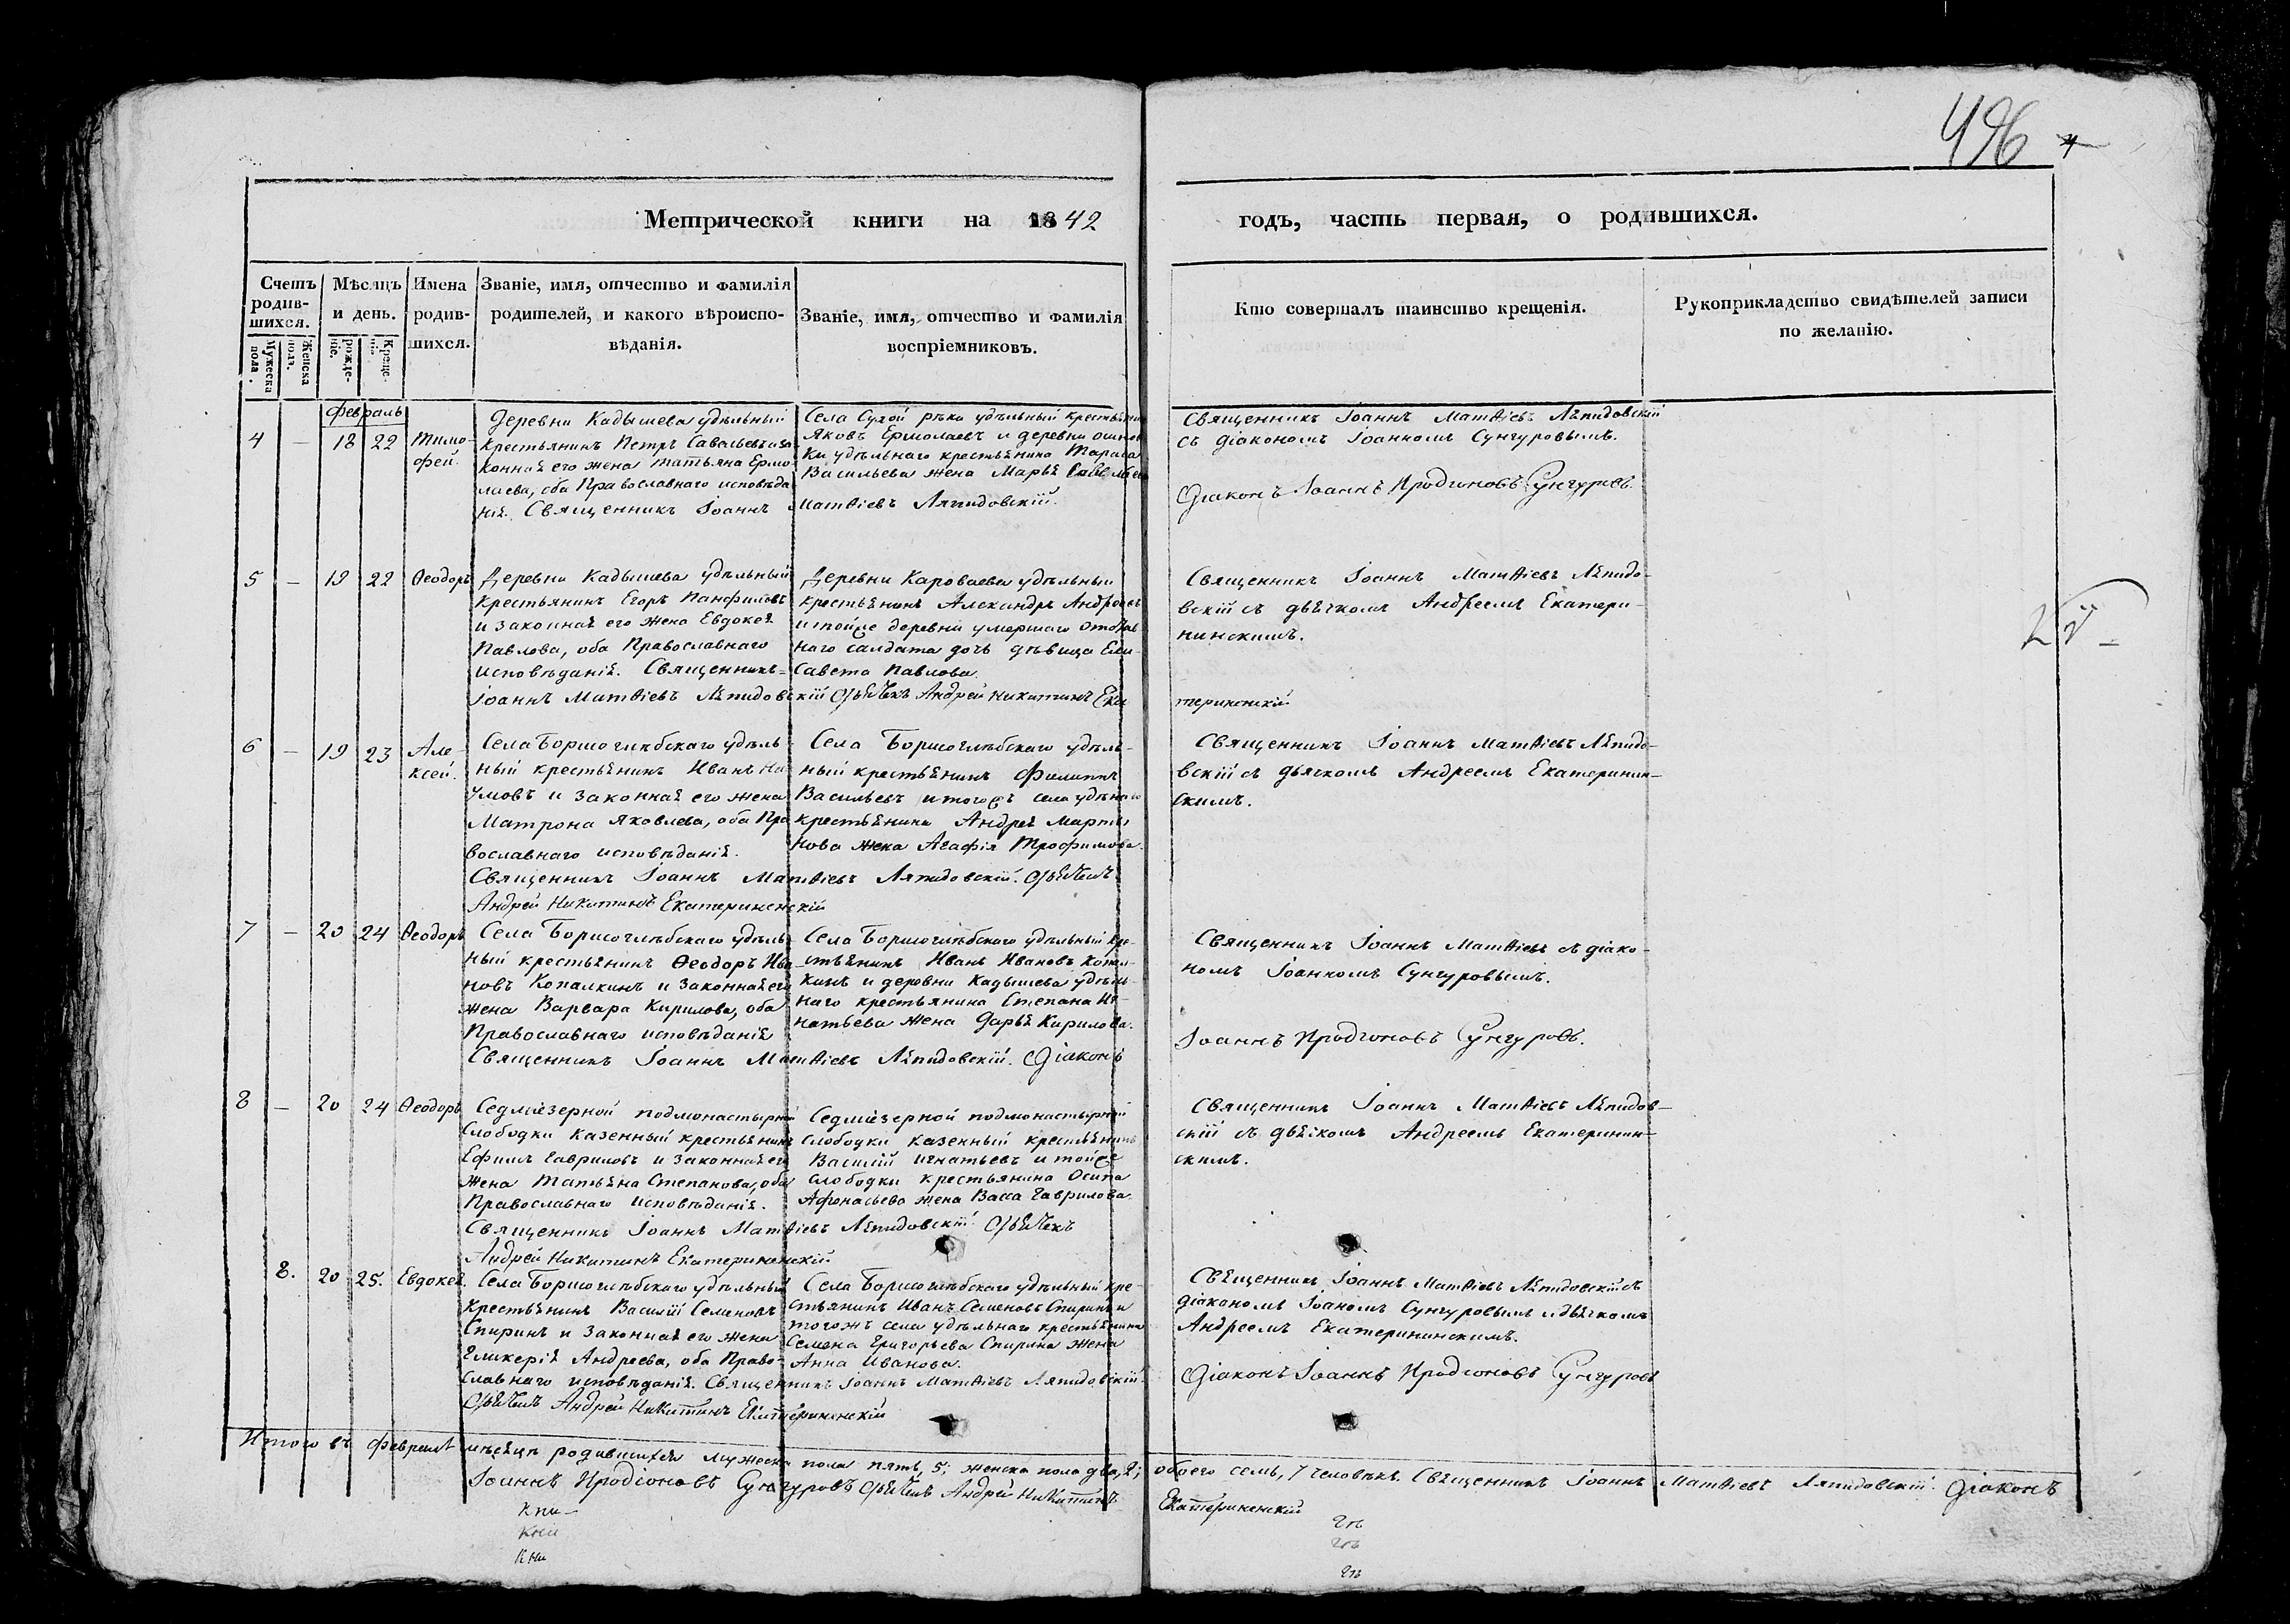 496 4
Метрической книги на 1842
годъ, часть первая, о родившихся.
Счетъ родив-шихся.
Мужеска пола.
Женска пола.
Мѣсяцъ и день.
рожде-ніе.
Креще-ніе.
Имена родив-шихся.
Званіе, имя, отчество и фамилія
родителей, и какого вѣроиспо-
вѣданія.
Званіе, имя, отчество и фамилія
воспріемниковъ.
Кто совершалъ таинство крещенія.
Рукоприкладство свидѣтелей записи
по желанію.
февраль
4 — 18 22 Тимо-
фей.
Деревни Кадышева удѣльный
крестьянинъ Петръ Савельевъ и за
конная его жена Татьяна Ермо
лаева, оба Православнаго исповѣда
нія. Священникъ Іоаннъ Матѳіевъ Ляпидовскій.
Села Сухой рѣки удѣльный крестьянинъ
Яковъ Ермолаевъ и деревни
ки удѣльнаго крестьянина Тараса
Васильева жена Марья
Священникъ Іоаннъ Матѳіевъ Ляпидовскій
съ діакономъ Іоанномъ Сунгуровымъ.
Діаконъ Іоаннъ Иродіоновъ Сунгуровъ.
5 — 19 22 Ѳеодоръ
Деревни Кадышева удѣльный
крестьянинъ Егоръ Панфиловъ
и законная его жена Евдокея
Павлова, оба Православнаго
исповѣданія. Священникъ
Іоаннъ Матѳіевъ Ляпидовскій Дьячекъ Андрей Никитинъ Ека
Деревни Караваева удѣльный
крестьянинъ Александръ Андреевъ
и тойже деревни умершаго отстав
наго салдата дочь дѣвица Ели-
савета Павлова.
Священникъ Іоаннъ Матѳіевъ Ляпидо-
вскій съ дьячкомъ Андреемъ Екатери-
нинскимъ.
теринискій
6 — 19 23 Але-
ксей.
Села Борисоглѣбскаго удѣль-
ный крестьянинъ Иванъ На
умовъ и законная его жена
Матрона Яковлева, оба Пра
вославнаго исповѣданія.
Священникъ Іоаннъ Матѳіевъ Ляпидовскій. Дьячекъ
Андрей Никитинъ Екатериненскій
Села Борисоглѣбскаго удѣль-
ный крестьянинъ Филиппъ
Васильевъ и тогожъ села удѣнаго
крестьянина Андрея Марты
нова жена Агафія Трофимова.
Священникъ Іоаннъ Матѳіевъ Ляпидо-
вскій съ дьячкомъ Андреемъ Екатеринин-
скимъ.
7 — 20 24 Ѳеодоръ
Села Борисоглѣбскаго удѣль
ный крестьянинъ Ѳеодоръ Ива
новъ Копалкинъ и законная его
жена Варвара Кирилова, оба
Православнаго исповѣданія
Священникъ Іоаннъ Матѳіевъ Ляпидовскій. Діаконъ
Села Борисоглѣбскаго удѣльный кре-
стьянинъ Иванъ Ивановъ Копал-
кинъ и деревни Кадышева удѣль-
наго крестьянина Степана Иг-
натьева жена Дарья Кирилова.
Священникъ Іоаннъ Матѳіевъ съ діако-
номъ Іоанномъ Сунгуровымъ.
Іоаннъ Иродіоновъ Сунгуровъ.
8 — 20 24 Ѳеодоръ
Седміезерной подмонастырной
слободки казенный крестьянинъ
Ефимъ Гавриловъ и законная его
жена Татьяна Степанова, оба
Православнаго исповѣданія.
Священникъ Іоаннъ Матѳіевъ Ляпидовскій. Дьячекъ
Андрей Никитинъ Екатериненскій
Седміезерной подмонастырной
слободки казенный крестьянинъ
Василій Игнатьевъ и тойже
слободки крестьянина Осипа
Афонасьева жена Васса Гаврилова.
Священникъ Іоаннъ Матѳіевъ Ляпидов-
скій съ дьячкомъ Андреемъ Екатеринин-
скимъ.
8. 20 25. Евдокея.
Села Борисоглѣбскаго удѣльный
крестьянинъ Василій Семеновъ
Спиринъ и законная его жена
Гликерія Андреева, оба Право-
славнаго исповѣданія. Священникъ Іоаннъ Матѳіевъ Ляпидовскій.
Дьячекъ Андрей Никитинъ Екатериненскій
Села Борисоглѣбскаго удѣльный кре-
стьянинъ Иванъ Семеновъ Спиринъ и
тогожъ села удѣльнаго крестьянина
Семена Григорьева Спирина жена
Анна Иванова.
Священникъ Іоаннъ Матѳіевъ Ляпидовскій съ
діакономъ Іоаномъ Сунгуровымъ и дьячкомъ
Андреемъ Екатерининскимъ.
Діаконъ Іоаннъ Иродіоновъ Сунгуровъ
Итого въ февралѣ мѣсяцѣ родившихся мужеска пола пять, 5; женска пола два, 2; обоего семь, 7 человѣкъ. Священникъ Іоаннъ Матѳіевъ Ляпидовскій. Діаконъ
Іоаннъ Иродіоновъ Сунгуровъ Дьячекъ Андрей Никитинъ Екатериненскій
кни-
кни
кни
гѣ
гѣ
гѣ